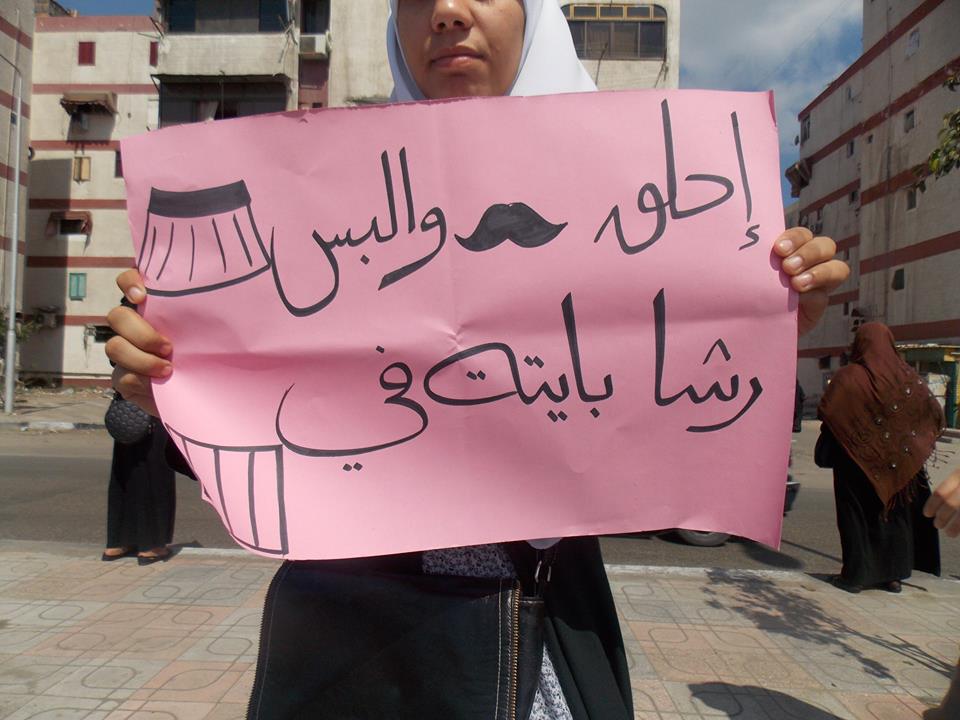 إحلق والبس
رشا بايته في